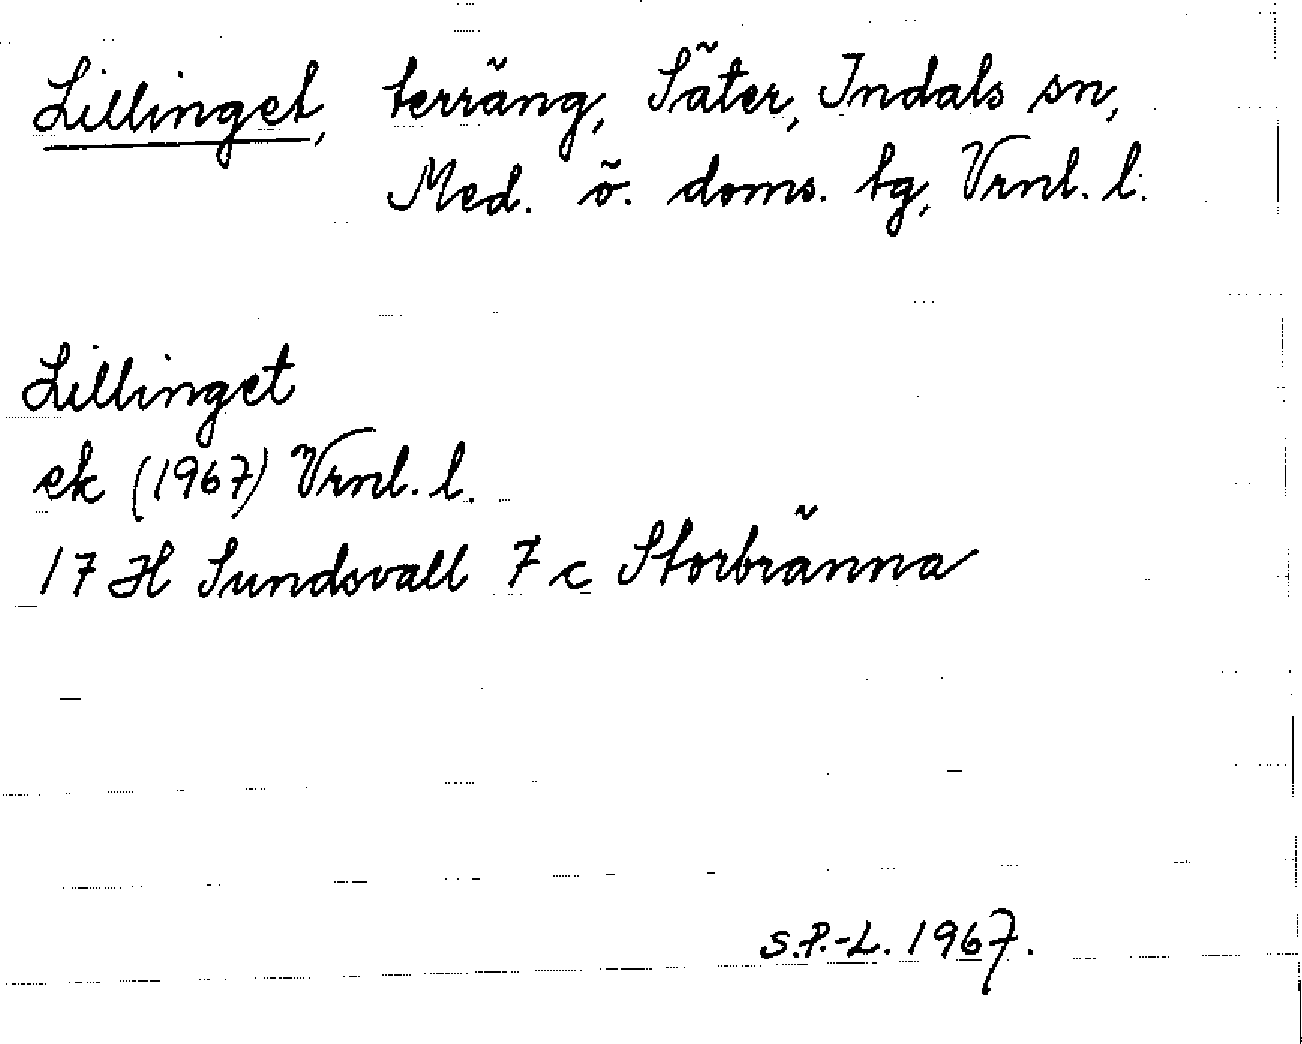 Lillinget, terräng, Säter, Indals sn,
Med. ö. doms. tg, Vrnl. l.
Lillinget
ek (1967) Vrnl. l.
17 H Sundsvall 7 c Storbränna
S.P.-L. 1967.